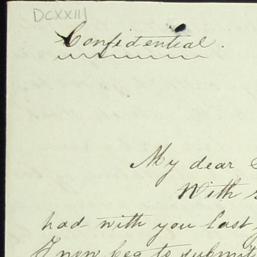 DCXXIII
Confidential.
My dear
With
had with you last
I now beg to submit